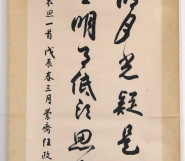 明月光疑是
明月低頭思
思一首 戊辰春三月